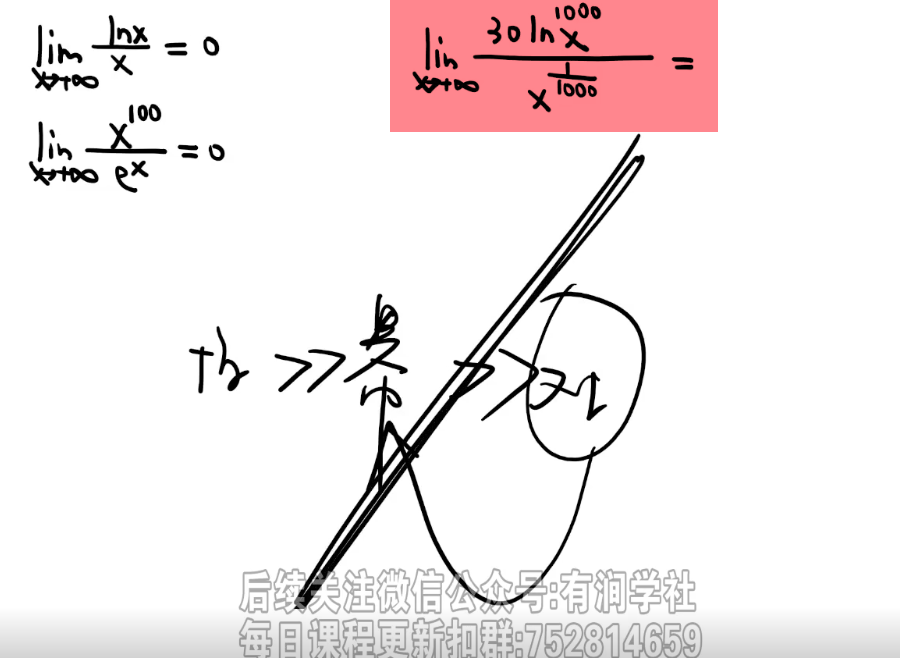 lim x→+∞ lnx/x = 0
lim x→+∞ x^100/e^x = 0
lim x→+∞ 30 ln^1000 x / x^(1/1000) =
>> >>
后续关注微信公众号:有涧学社
每日课程更新扣群:752814659